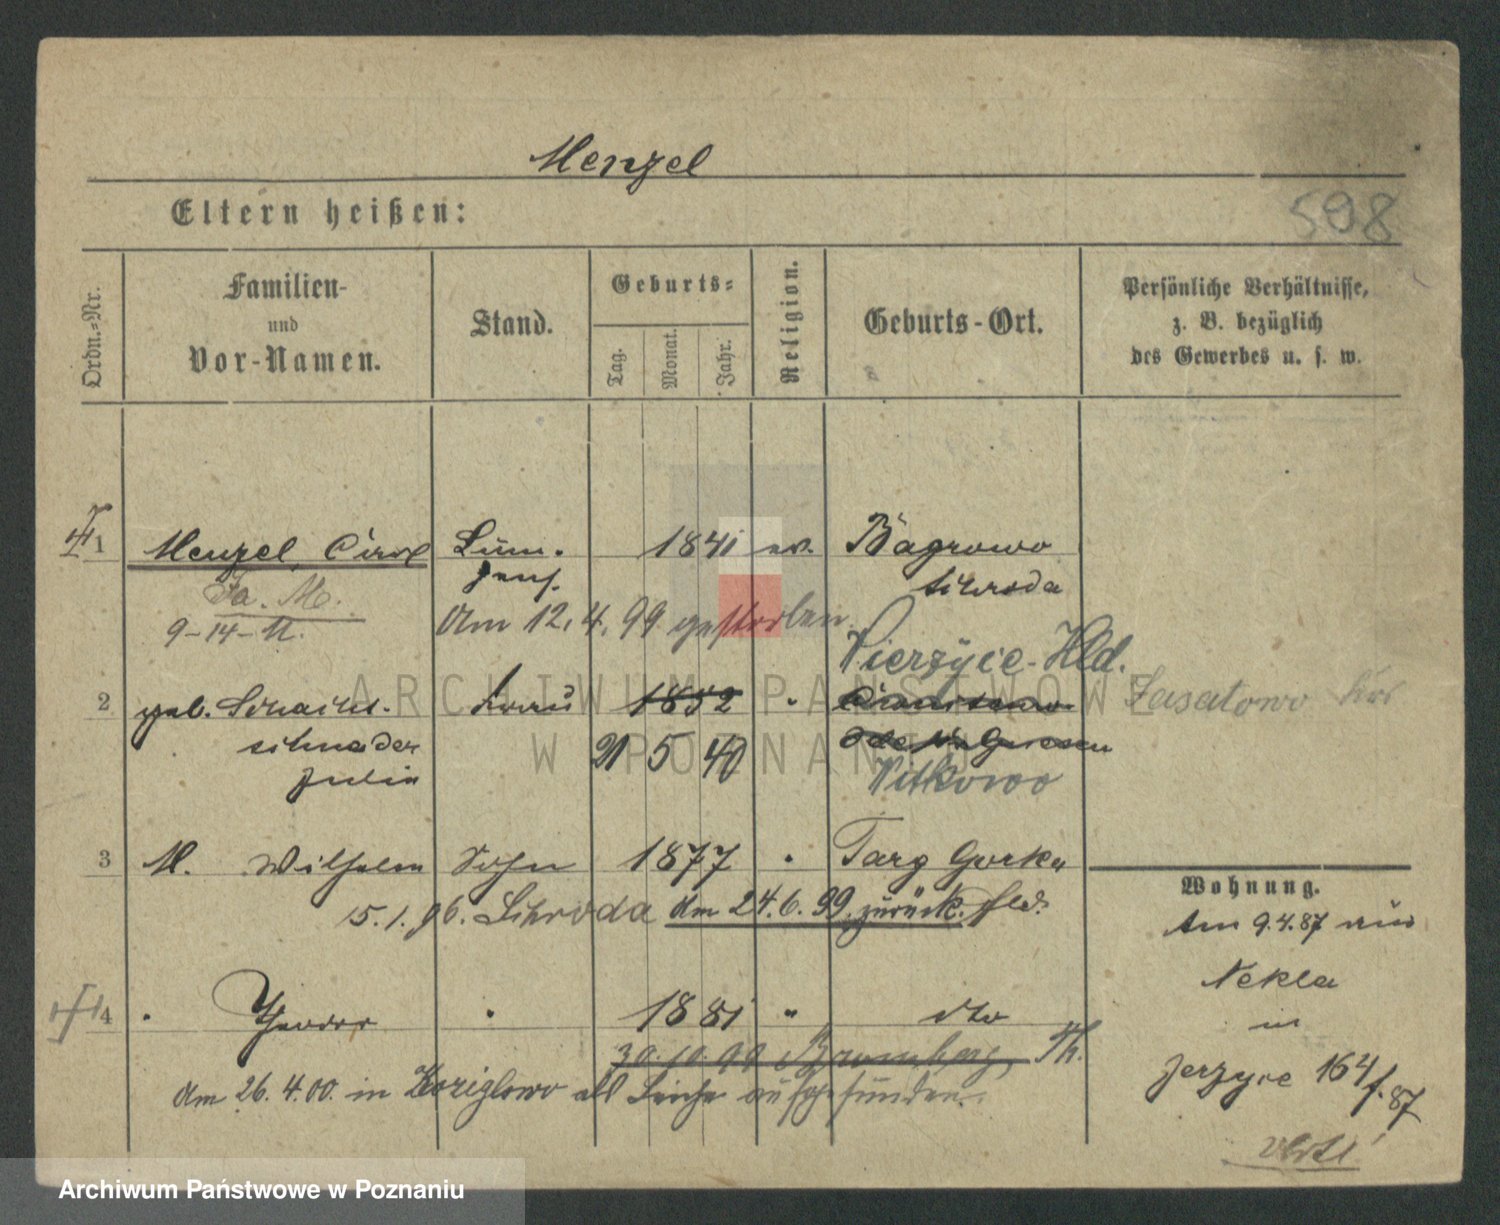 Menzel
Eltern heißen:
598
Ordn.-Nr.
Familien-
und
Vor-Namen.
Stand.
Geburts-
Tag.
Monat.
Jahr.
Religion.
Geburts-Ort.
Persönliche Verhältnisse,
z. B. bezüglich
des Gewerbes u. s. w.
1 Menzel, Carl 1841 ev. Bagrowo
Schroda
Fa. M.
9-14-
Am 12.4.99 gestorben
Vierzyce-Hld.
2 geb. Frau 1852 "
Julia 21 5 40
Witkowo
3 M. Wilhelm Sohn 1877 " Targ Gorka
15.1.96. Schroda Am 24.6.99 zurück.
4 " Theodor " 1881 " dto
30.10.99 Bromberg, Th.
Am 26.4.00. in als Leiche aufgefunden.
Wohnung.
Am 9.4.87 aus
Nekla
in
Jerzyce 164
f. 87
ARCHIWUM PAŃSTWOWE
W POZNANIU
Archiwum Państwowe w Poznaniu